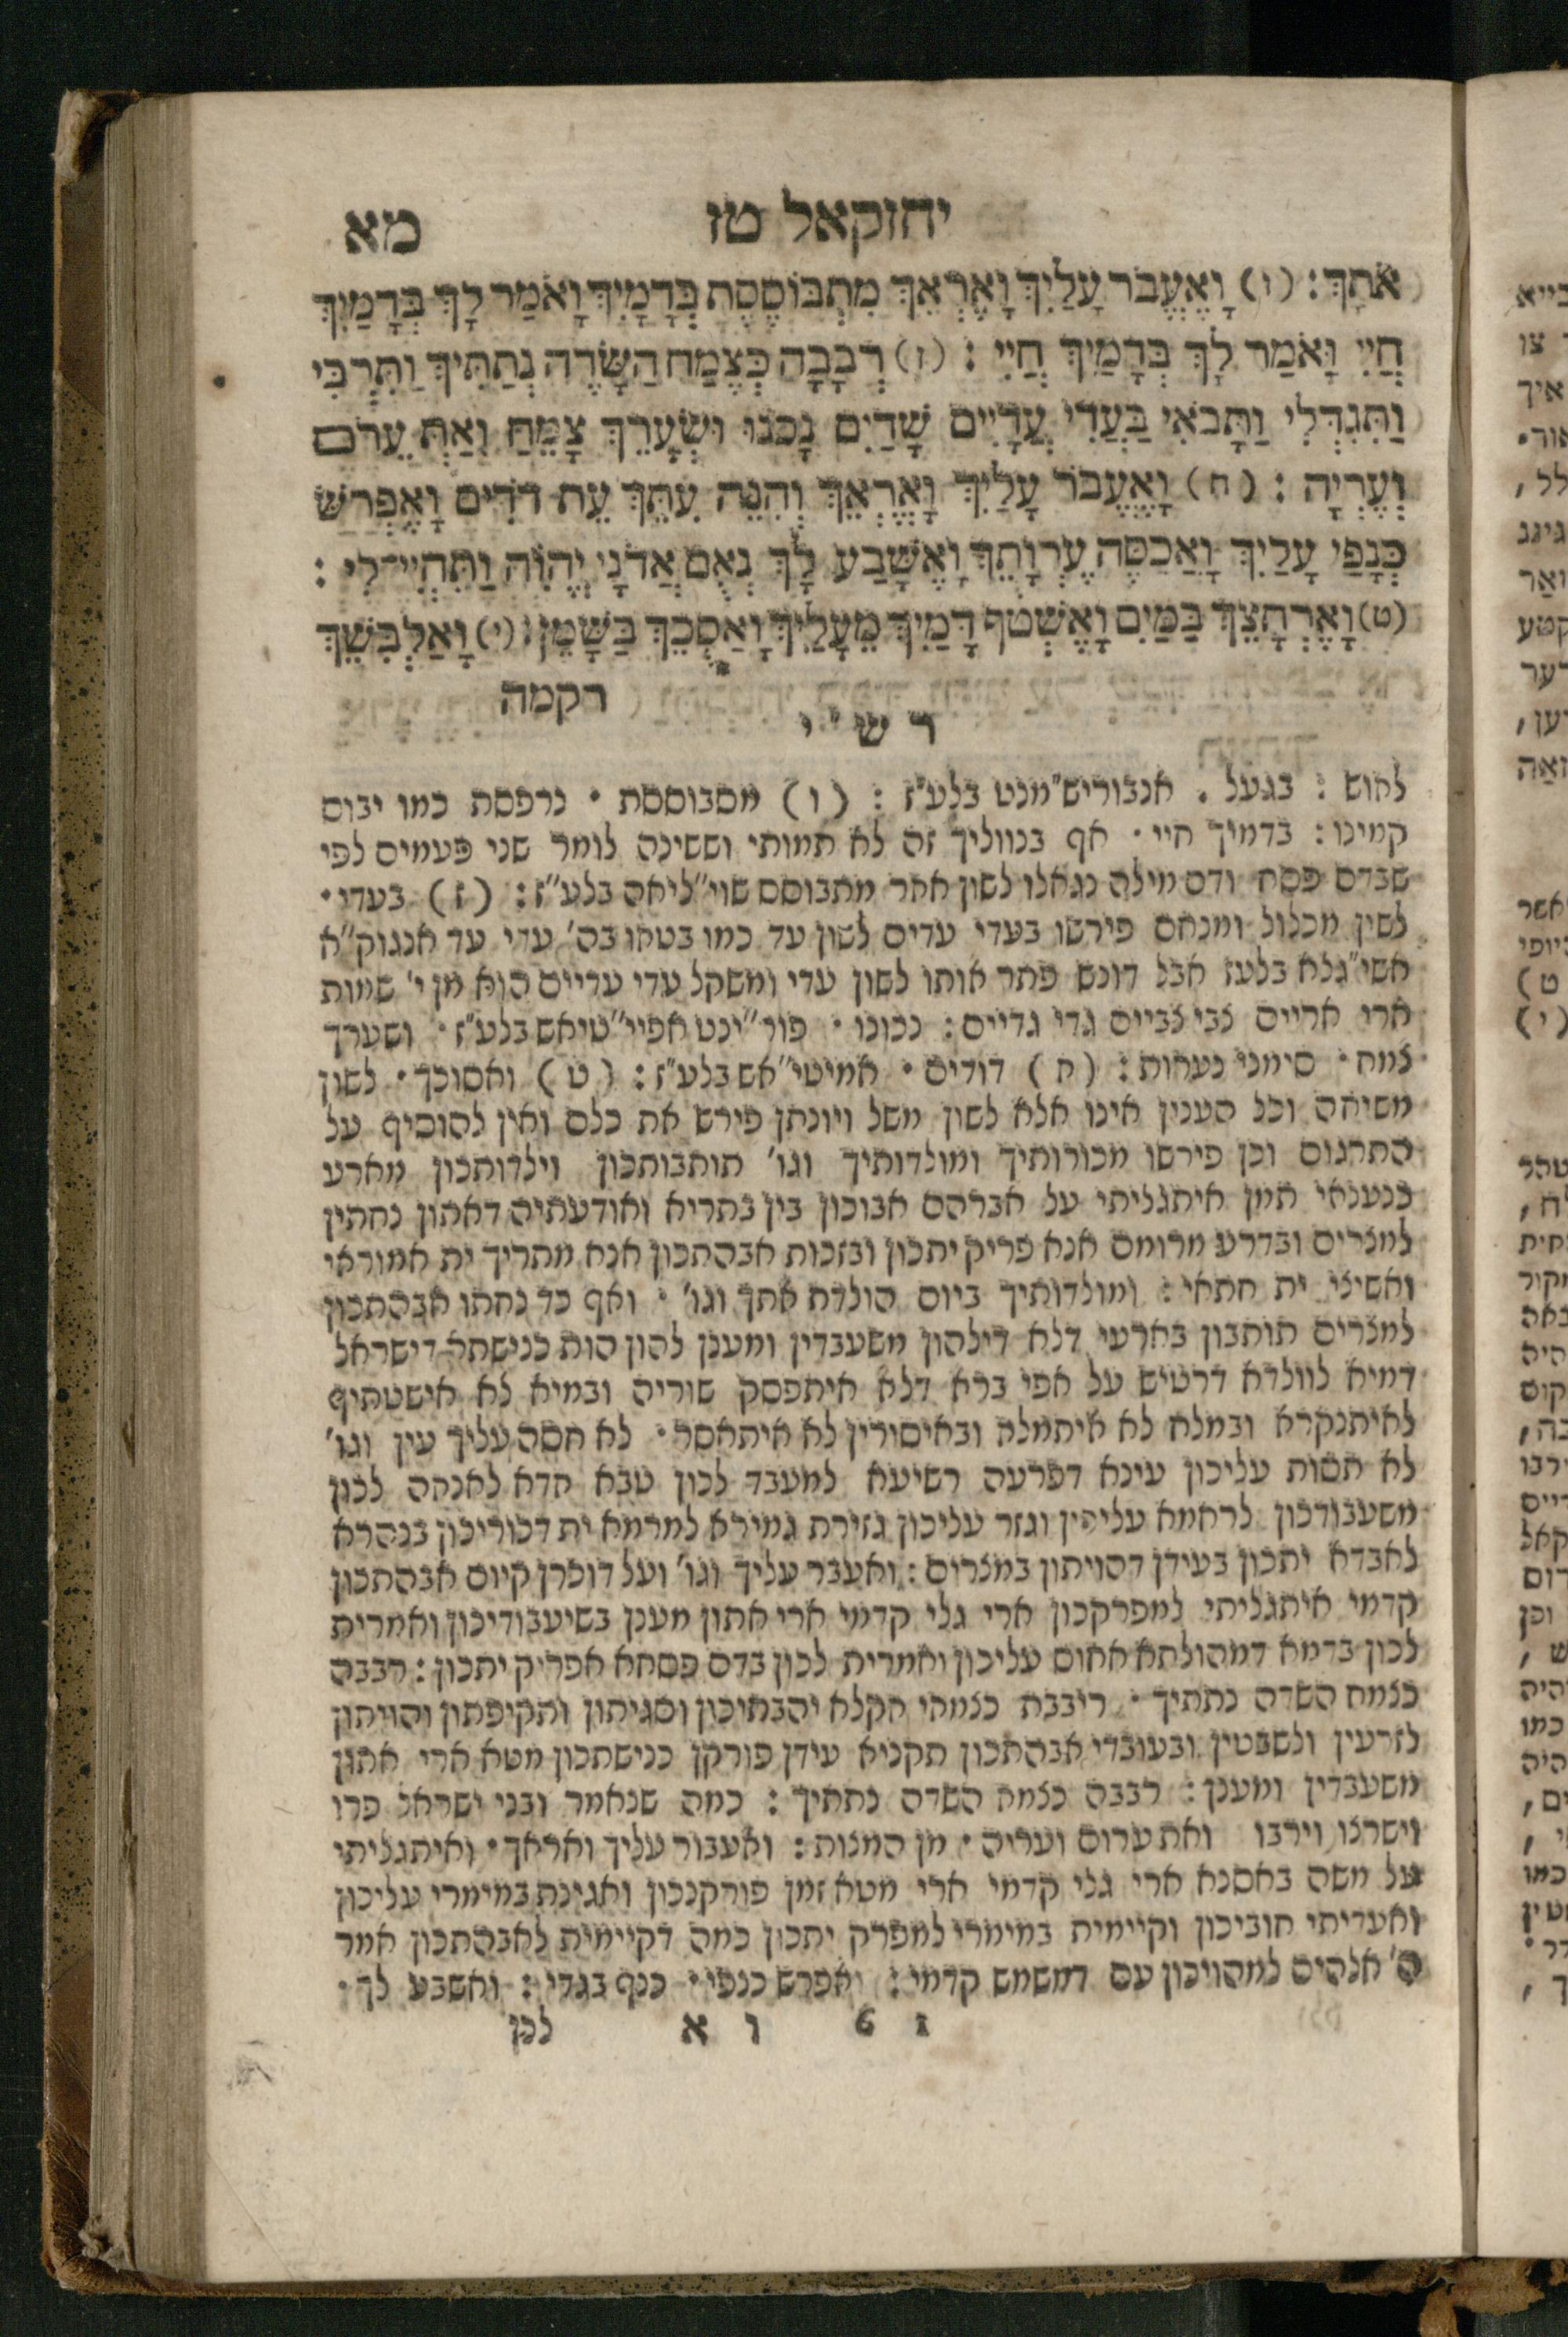 יחזקאל טז
מא
אֹתָךְ: (ו) וָאֶעֱבֹר עָלַיִךְ וָאֶרְאֵךְ מִתְבּוֹסֶסֶת בְּדָמָיִךְ וָאֹמַר לָךְ בְּדָמַיִךְ
חֲיִי וָאֹמַר לָךְ בְּדָמַיִךְ חֲיִי : (ז) רְבָבָה כְּצֶמַח הַשָּׂדֶה נְתַתִּיךְ וַתִּרְבִּי
וַתִּגְדְּלִי וַתָּבֹאִי בַּעֲדִי עֲדָיִים שָׁדַיִם נָכֹנוּ וּשְׂעָרֵךְ צִמֵּחַ וְאַתְּ עֵרֹם
וְעֶרְיָה : (ח) וָאֶעֱבֹר עָלַיִךְ וָאֶרְאֵךְ וְהִנֵּה עִתֵּךְ עֵת דֹּדִים וָאֶפְרֹשׂ
כְּנָפִי עָלַיִךְ וָאֲכַסֶּה עֶרְוָתֵךְ וָאֶשָּׁבַע לָךְ נְאֻם אֲדֹנָי יְהוִֹה וַתִּהְיִי־לִי :
(ט) וָאֶרְחָצֵךְ בַּמַּיִם וָאֶשְׁטֹף דָּמַיִךְ מֵעָלָיִךְ וָאֲסֻכֵךְ בַּשָּׁמֶן: (י) וָאַלְבִּשֵׁךְ
רקמה
רש"י
לחוש : בגעל . אנבוריש"מנט בלע"ז : (ו) מסבוססת • נרפסת כמו יבוס
קמינו : בדמיך חיי • אף בנווליך זה לא תמותי וששינה לומר שני פעמים לפי
שבדם פסח ודם מילה נגאלו לשון אחר מתבוסס שוי"ליאה בלע"ז : (ז) בעדי •
לשין מכלול ומנחם פירשו בעדי עדיים לשון עד כמו בטחו בה' עדי עד אנגוק"א
אשי"גלא בלעז אבל דונש פתר אותו לשון עדי ומשקל עדי עדיים הוא מן י' שמות
ארי אריים צבי צביים גדי גדיים : נכונו • פור"ינט אפיי"טיאש בלע"ז • ושערך
צמח • סימני נערות : (ח) דודים • אמיטי"אש בלע"ז : (ט) ואסוכך • לשון
משיחה וכל הענין אינו אלא לשון משל ויונתן פירש את כלם ואין להוסיף על
התרגום וכן פירשו מכורותיך ומולדותיך וגו' תותבותכון וילדותכון מארע
כנענאי תמן איתגליתי על אברהם אבוכון בין בתריא ואודעתיה דאתון נחתין
למצרים ובדרע מרומם אנא פריק יתכון ובזכות אבהתכון אנא מתריך ית אמוראי
ואשיצי ית חתאי : ומולדותיך ביום הולדת אתך וגו' • ואף כד נחתו אבהתכון
למצרים תותבון בארעי דלא דילהון משעבדין ומענן להון הות כנישתא דישראל
דמיא לוולדא דרטיש על אפי ברא דלא איתפסק שוריה ובמיא לא אישטתיף
לאיתנקרא ובמלח לא איתמלח ובאיסורין לא איתאסר • לא חסה עליך עין וגו'
לא חסות עליכון עינא דפרעה רשיעא למעבד לכון טבא חדא לאנחה לכון
משעבודכון לרחמא עליהין וגזר עליכון גזירת גמירא למרמא ית דכוריכון בנהרא
לאבדא יתכון בעידן דהויתון במצרים : ואעבר עליך וגו' ועל דוכרן קיום אבהתכון
קדמי איתגליתי למפרקכון ארי גלי קדמי ארי אתון מענן בשיעבודיכון ואמרית
לכון בדמא דמהולתא אחוס עליכון ואמרית לכון בדם פסחא אפריק יתכון : רבבה
כצמח השדה נתתיך • ריבבת כצמחי חקלא יהבתיכון וסגיתון ותקיפתון והויתון
לזרעין ולשבטין ובעובדי אבהתכון תקניא עידן פורקן כנישתכון מטא ארי אתון
משעבדין ומענן : רבבה כצמח השדה נתתיך : כמה שנאמר ובני ישראל פרו
וישרצו וירבו ואת ערום ועריה • מן המצות : ואעבור עליך ואראך • ואיתגליתי
על משה באסנא ארי גלי קדמי ארי מטא זמן פורקנכון ואגינת במימרי עליכון
ואעדיתי חוביכון וקיימית במימרי למפרק יתכון כמה דקיימית לאבהתכון אמר
ה' אלהים למהויכון עם דמשמש קדמי : ואפרש כנפי • כנף בגדי : ואשבע לך •
ז 6 ו א
לכן